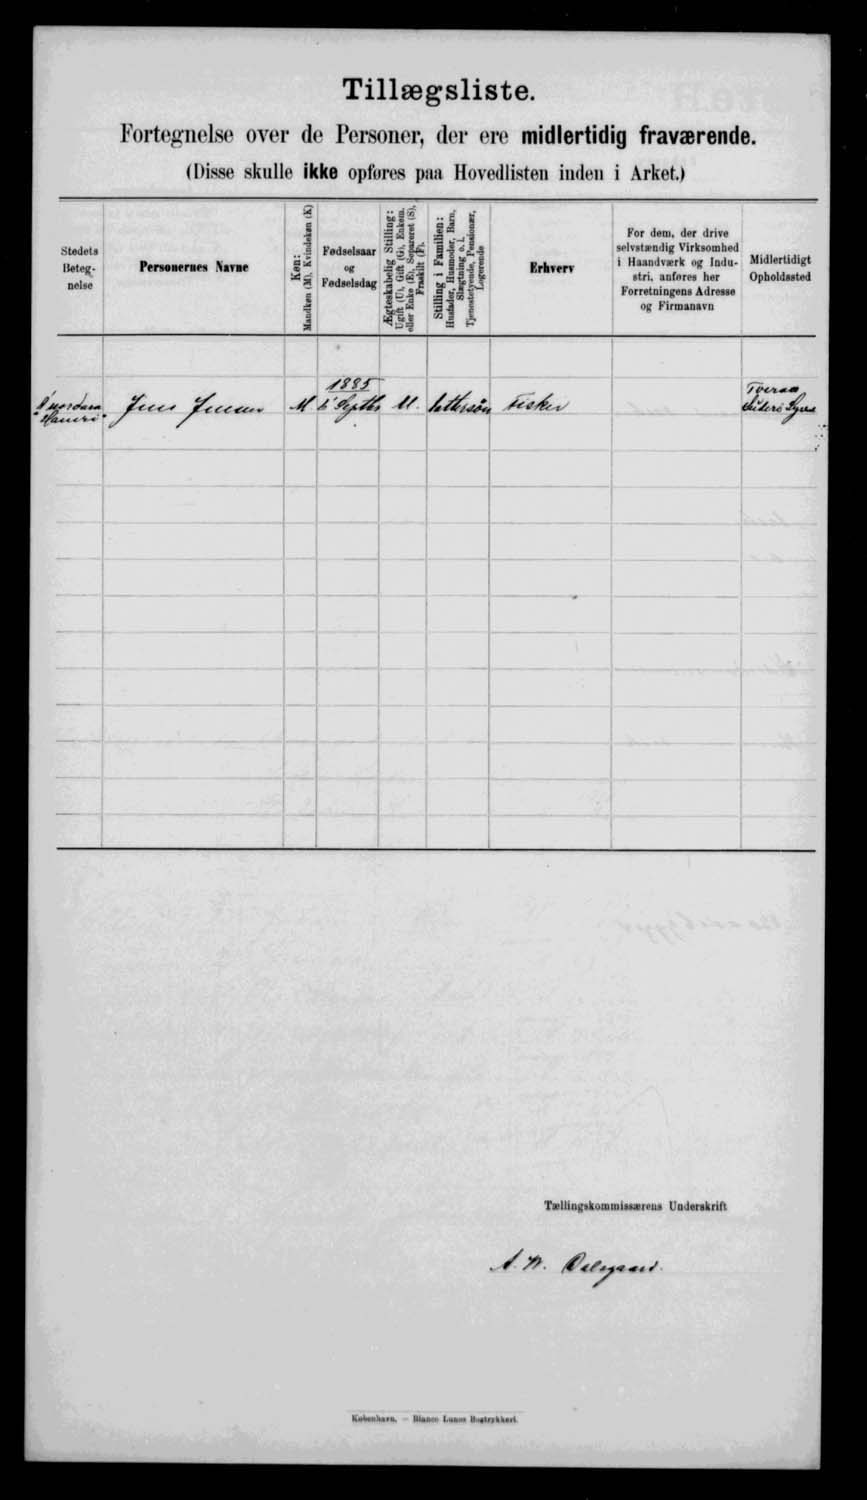 Tillægsliste.
Fortegnelse over de Personer, der ere midlertidig fraværende.
(Disse skulle ikke opføres paa Hovedlisten inden i Arket.)
Stedets
Beteg-
nelse
Personernes Navne
Køn:
Mandkøn (M), Kvindekøn (K)
Fødselsaar
og
Fødselsdag
Ægteskabelig Stilling:
Ugift (U), Gift (G), Enkem.
eller Enke (E), Separeret (S),
Fraskilt (F).
Stilling i Familien:
Husfader, Husmoder, Barn,
Slægtning o. l.
Tjenestetyende, Pensionær,
Logerende
Erhverv
For dem, der drive
selvstændig Virksomhed
i Haandværk og Indu-
stri, anføres her
Forretningens Adresse
og Firmanavn
Midlertidigt
Opholdssted
1885
Jens Jensen M Septbr U. Fisker
Tveraa
Suderø
Tællingskommissærens Underskrift
A. W. Dalsgaard.
København. — Bianco Lunos Bogtrykkeri.